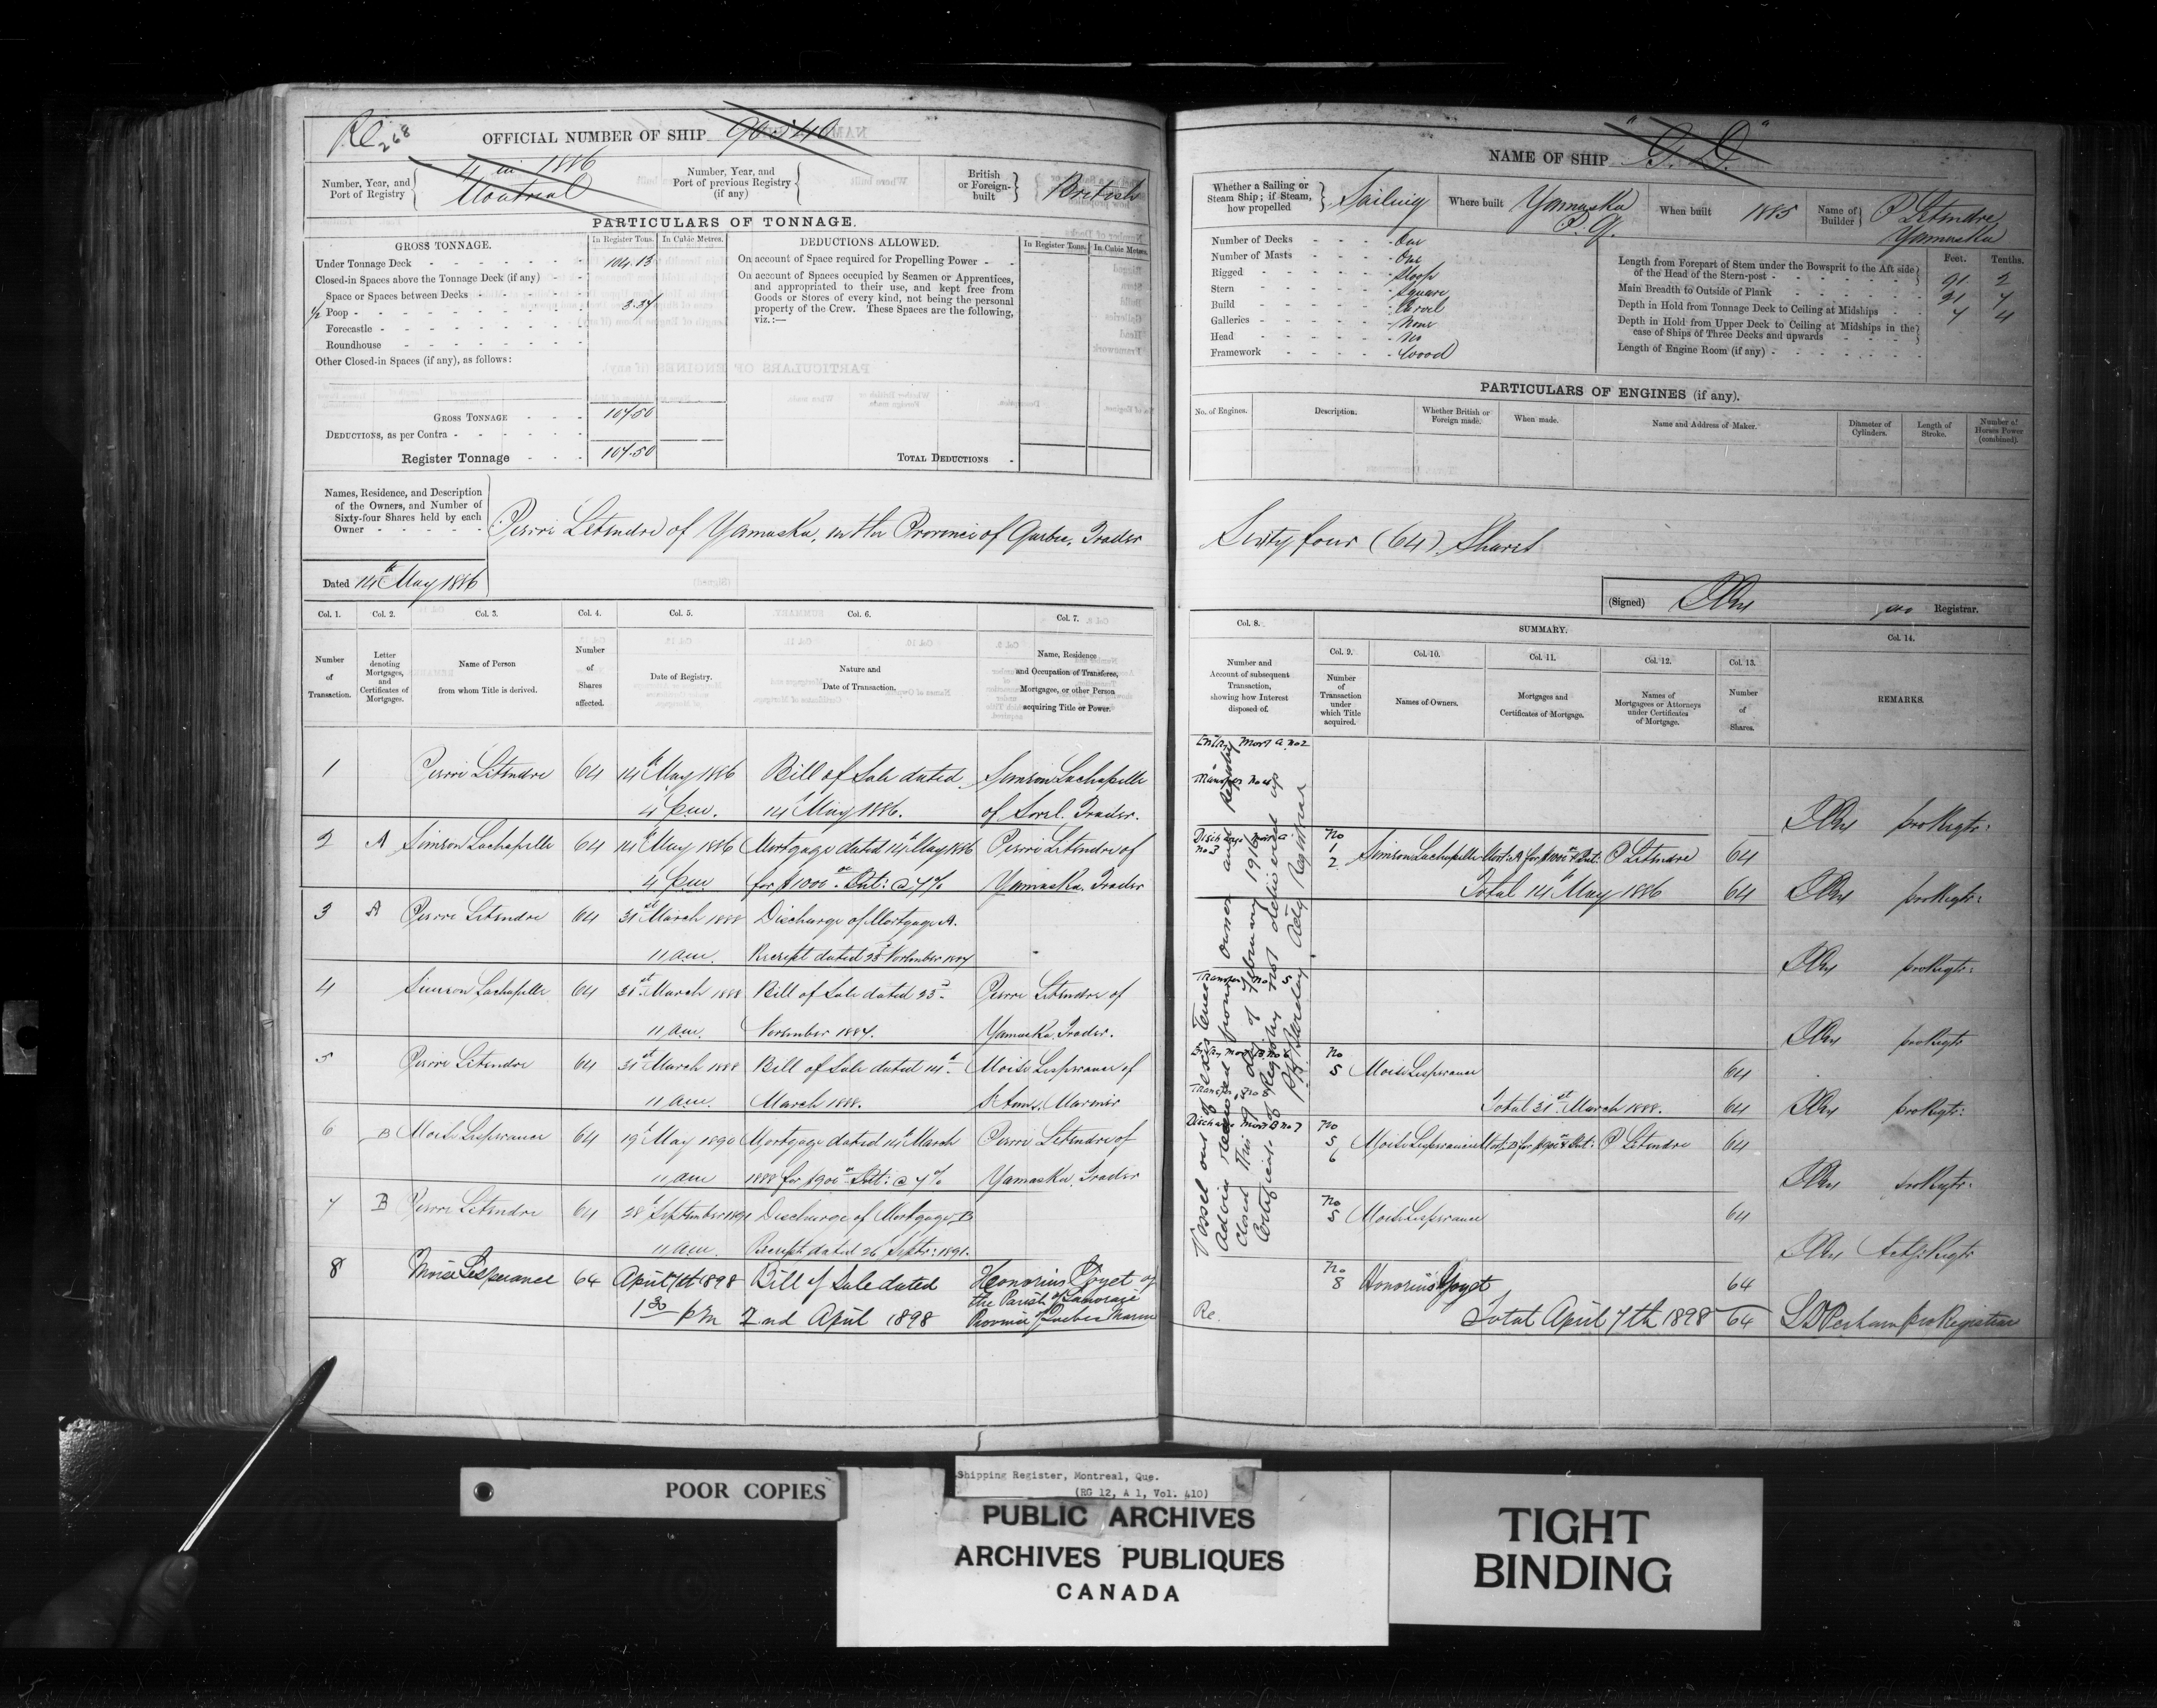 Re 268
OFFICIAL NUMBER OF SHIP 90540
Number, Year, and Port of Registry 11 in 1886 Montreal
Number, Year, and Port of previous Registry (if any)
British or Foreign-built British
PARTICULARS OF TONNAGE.
GROSS TONNAGE. In Register Tons. In Cubic Metres.
Under Tonnage Deck 104.13
Closed-in Spaces above the Tonnage Deck (if any)
Space or Spaces between Decks
½ Poop 3.37
Forecastle
Roundhouse
Other Closed-in Spaces (if any), as follows:
GROSS TONNAGE 107.50
DEDUCTIONS, as per Contra
Register Tonnage 107.50
DEDUCTIONS ALLOWED. In Register Tons. In Cubic Metres.
On account of Space required for Propelling Power
On account of Spaces occupied by Seamen or Apprentices,
and appropriated to their use, and kept free from
Goods or Stores of every kind, not being the personal
property of the Crew. These Spaces are the following,
viz.:—
TOTAL DEDUCTIONS
Names, Residence, and Description
of the Owners, and Number of
Sixty-four Shares held by each
Owner
Pierre Letendre of Yamaska, in the Province of Quebec, Trader
Dated 14th May 1886
Col. 1. Col. 2. Col. 3. Col. 4. Col. 5. Col. 6. Col. 7.
Number of Transaction.
Letter denoting Mortgages, and Certificates of Mortgages.
Name of Person from whom Title is derived.
Number of Shares affected.
Date of Registry.
Nature and Date of Transaction.
Name, Residence and Occupation of Transferee, Mortgagee, or other Person acquiring Title or Power.
1 Pierre Letendre 64 14th May 1886 Bill of Sale dated Simson Lachapelle
4 p.m. 14th May 1886. of Sorel. Trader.
2 A Simson Lachapelle 64 14th May 1886 Mortgage dated 14th May 1886 Pierre Letendre of
4 p.m. for $1000 Int: @ 7% Yamaska. Trader
3 A Pierre Letendre 64 31st March 1888 Discharge of Mortgage A.
11 a.m. Receipt dated 23rd November 1887
4 Simson Lachapelle 64 31st March 1888 Bill of Sale dated 23rd Pierre Letendre of
11 a.m. November 1887. Yamaska, Trader.
5 Pierre Letendre 64 31st March 1888 Bill of Sale dated 14th Moise Lesperance of
11 a.m. March 1888. St Anns. Mariner
6 B Moise Lesperance 64 19th May 1890 Mortgage dated 14th March Pierre Letendre of
11 a.m. 1888 for $900 Int: @ 7% Yamaska. Trader
7 B Pierre Letendre 64 28th September 1891 Discharge of Mortgage B
11 a.m. Receipt dated 26th Septr: 1891.
8 Moise Lesperance 64 April 7th 1898 Bill of Sale dated Honorius Goyet of
1 30 p m 2nd April 1898 the Parish of Lanoraie
Province of Quebec
NAME OF SHIP "G. D."
Whether a Sailing or Steam Ship; if Steam, how propelled Sailing
Where built Yamaska P.Q.
When built 1885
Name of Builder P Letendre Yamaska
Number of Decks One
Number of Masts One
Rigged Sloop
Stern Square
Build Carvel
Galleries None
Head No
Framework Wood
Feet. Tenths.
Length from Forepart of Stem under the Bowsprit to the Aft side of the Head of the Stern-post 91 2
Main Breadth to Outside of Plank 21 7
Depth in Hold from Tonnage Deck to Ceiling at Midships 7 4
Depth in Hold from Upper Deck to Ceiling at Midships in the case of Ships of Three Decks and upwards
Length of Engine Room (if any)
PARTICULARS OF ENGINES (if any).
No. of Engines. Description. Whether British or Foreign made. When made. Name and Address of Maker. Diameter of Cylinders. Length of Stroke. Number of Horses Power (combined).
Sixty four (64) Shares
(Signed) Registrar.
Col. 8. SUMMARY. Col. 14.
Col. 9. Col. 10. Col. 11. Col. 12. Col. 13.
Number and Account of subsequent Transaction, showing how Interest disposed of.
Number of Transaction under which Title acquired.
Names of Owners.
Mortgages and Certificates of Mortgage.
Names of Mortgagees or Attorneys under Certificates of Mortgage.
Number of Shares.
REMARKS.
Entry Mort A. No 2
Transfer No 4
Discharge Mort A
No 3
Transfer No 5
Entry Mort B. No 6
Transfer No 8
Discharge Mort B No 7
Vessel out of existence
Advice received from owner and Registry
Closed This day of February 1916
Certificate of Registry not delivered up
Actg Registrar
No 1 2 Simson Lachapelle Mort. A for $1000 & Int: P Letendre 64
Total 14th May 1886 64
No 5 Moise Lesperance 64
Total 31st March 1888. 64
No 5 6 Moise Lesperance Mort. B for $900 & Int: P Letendre 64
No 5 Moise Lesperance 64
No 8 Honorius Goyet 64
Total April 7th 1898 64
pro Regtr:
pro Regtr:
pro Regtr:
pro Regtr
pro Regtr:
pro Regtr:
Actg: Regtr
pro Registrar
Re.
POOR COPIES
Shipping Register, Montreal, Que.
(RG 12, A 1, Vol. 410)
PUBLIC ARCHIVES
ARCHIVES PUBLIQUES
CANADA
TIGHT
BINDING